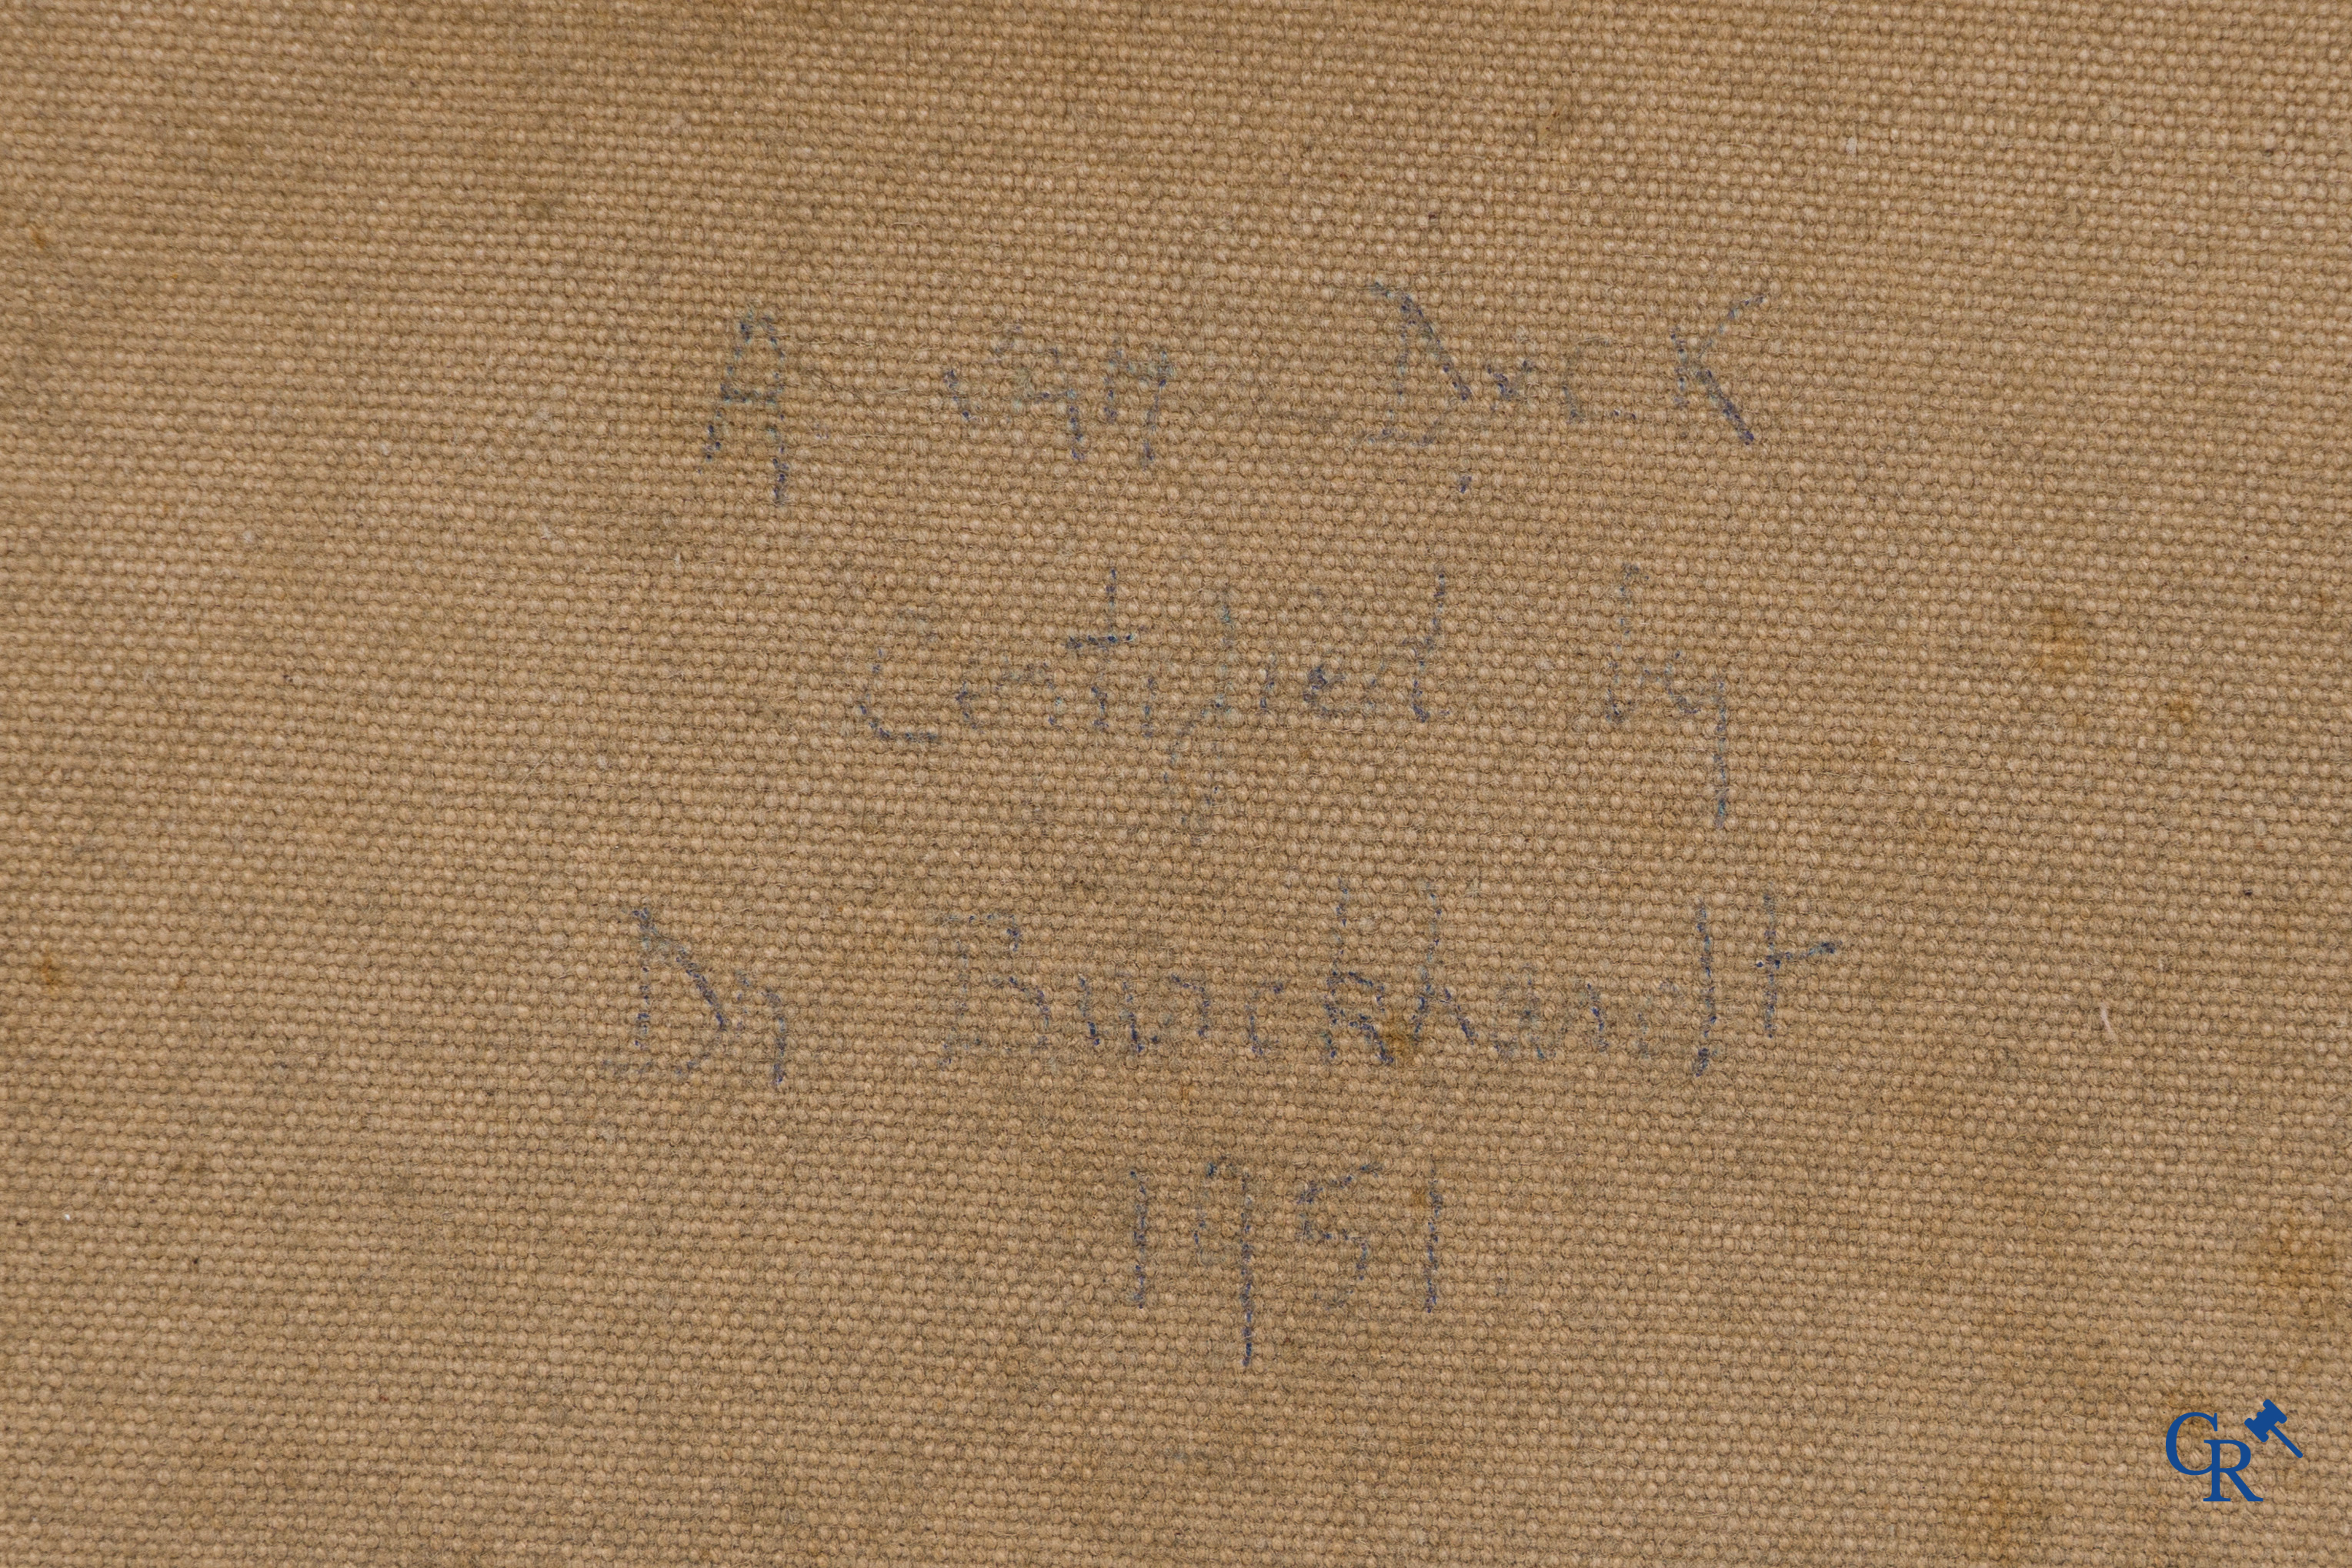 A van Dyck
Certified by
Dr Burckhardt
1951
CR